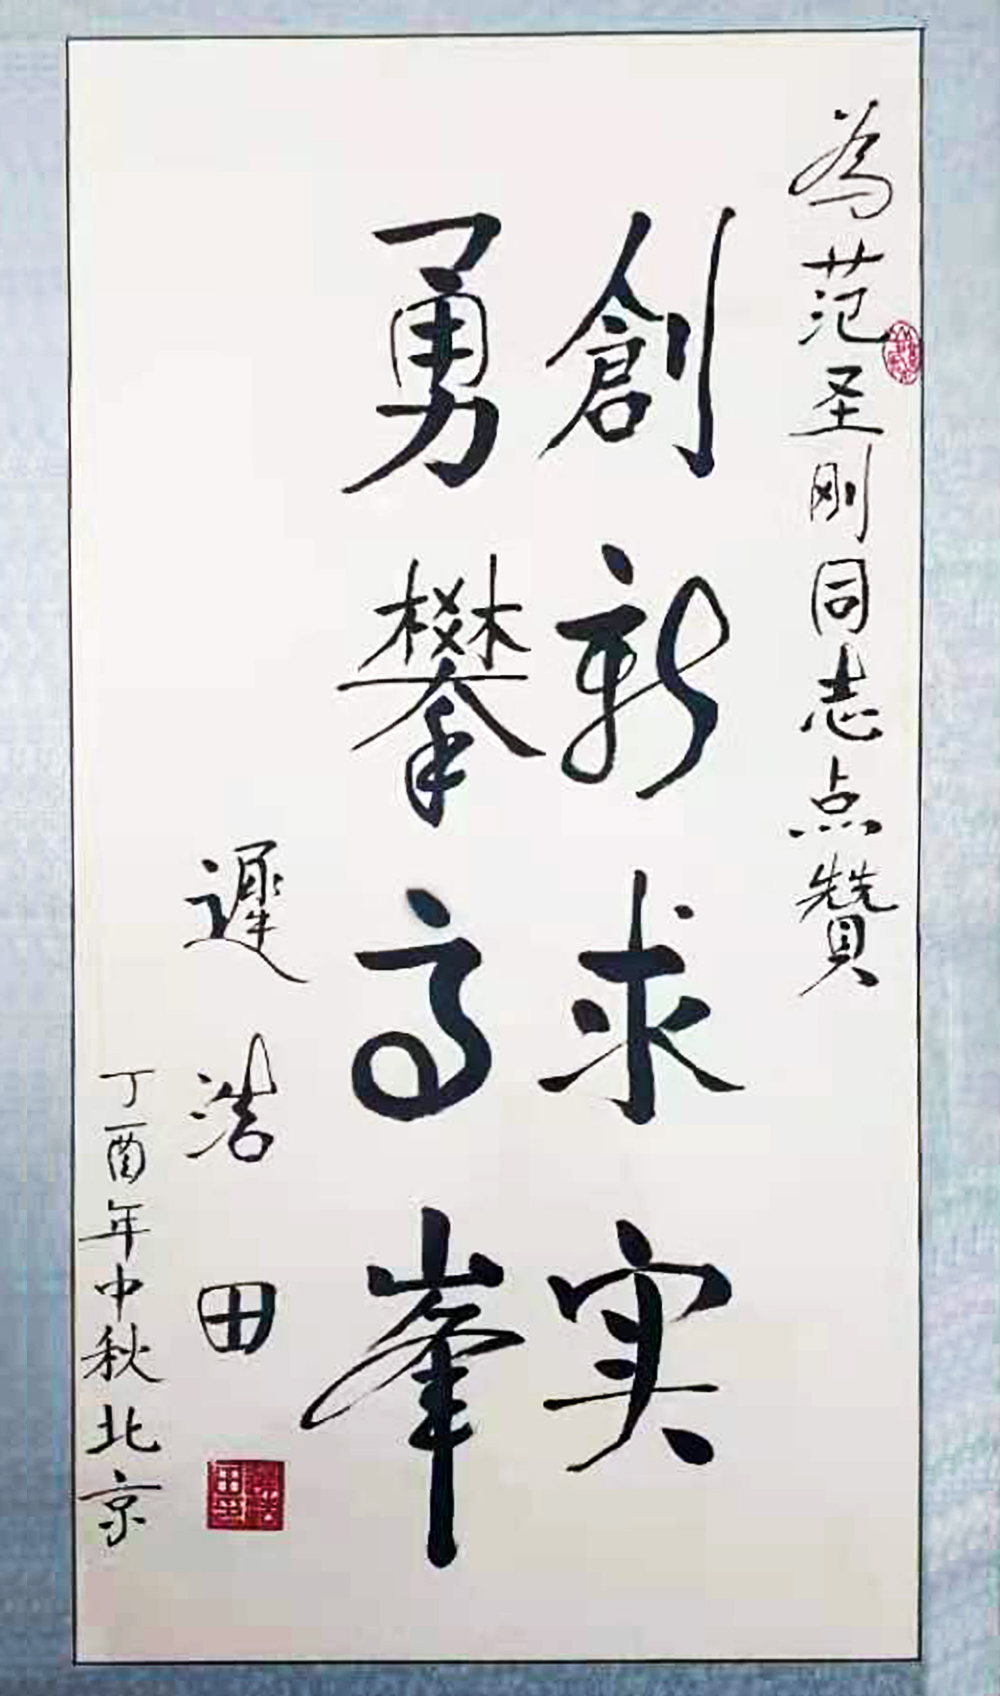 為范圣刚同志点贊
創新求实
勇攀高峯
遲浩田
丁酉年中秋北京